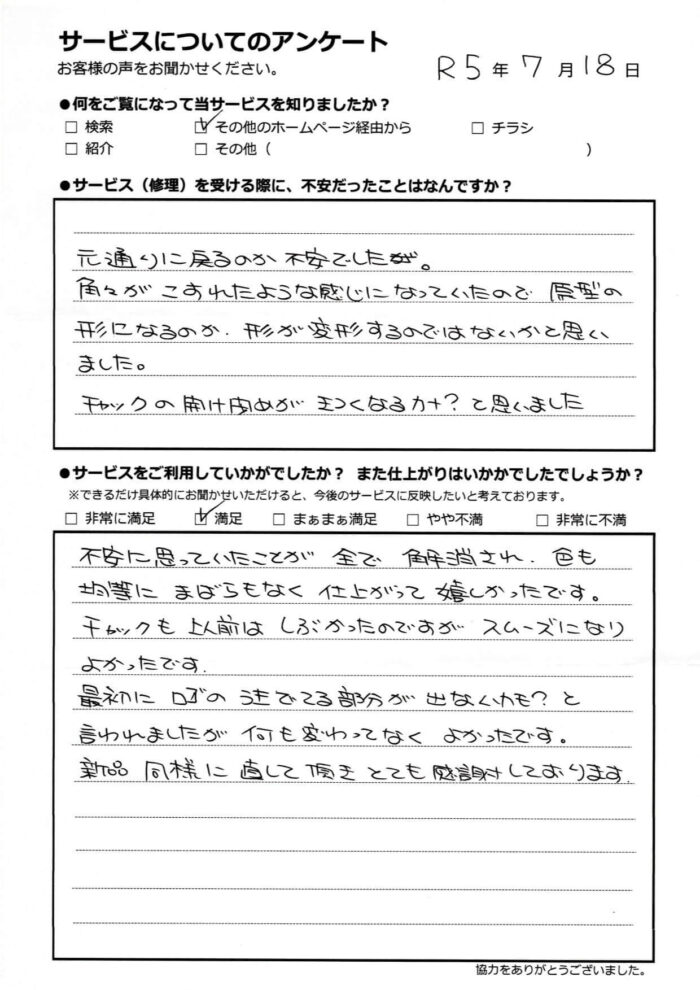 サービスについてのアンケート
お客様の声をお聞かせください。
R5年7月18日
●何をご覧になって当サービスを知りましたか？
□ 検索 ☑ その他のホームページ経由から □ チラシ
□ 紹介 □ その他（ ）
●サービス（修理）を受ける際に、不安だったことはなんですか？
元通りに戻るのか不安でした。
角々が こすれたような感じになっていたので 原型の
形になるのか．形が変形するのではないかと思い
ました。
チャックの開け閉めが きつくなるカナ？と思いました
●サービスをご利用していかがでしたか？ また仕上がりはいかかでしたでしょうか？
※できるだけ具体的にお聞かせいただけると、今後のサービスに反映したいと考えております。
□ 非常に満足 ☑ 満足 □ まぁまぁ満足 □ やや不満 □ 非常に不満
不安に思っていたことが 全て 解消され．色も
均等に まばらもなく 仕上がって 嬉しかったです。
チャックも 以前は しぶかったのですが スムーズになり
よかったです．
最初に ロゴの でてる部分が 出ないかも？と
言われましたが 何も変わってなく よかったです。
新品 同様に 直して 頂き とても 感謝しております．
協力をありがとうございました。